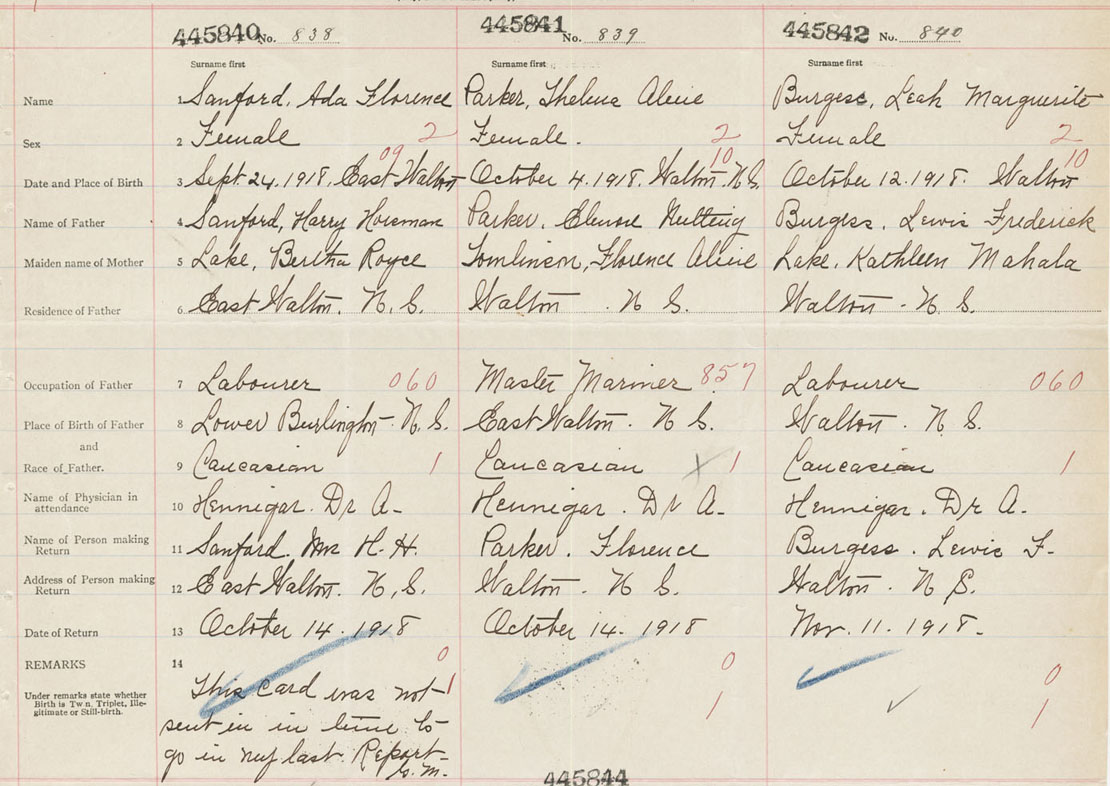 445840 No. 838 445841 No. 839 445842 No. 840
Surname first Surname first Surname first
Name 1 Sanford, Ada Florence Parker, Thelma Alvie Burgess, Leah Marguerite
Sex 2 Female 2 Female. 2 Female 2
09 10 10
Date and Place of Birth 3 Sept. 24. 1918. East Walton October 4. 1918. Walton. N.S. October 12. 1918. Walton
Name of Father 4 Sanford, Harry Parker. Nutting Burgess, Lewis Frederick
Maiden name of Mother 5 Lake, Bertha Royce Tomlinson, Florence Alvie Lake, Kathleen Mahala
Residence of Father 6 East Walton. N. S. Walton. N S. Walton. N. S.
Occupation of Father 7 Labourer 060 Master Mariner 857 Labourer 060
Place of Birth of Father 8 Lower Burlington. N. S. East Walton. N S. Walton. N. S.
and
Race of Father. 9 Caucasian 1 Caucasian 1 Caucasian 1
Name of Physician in
attendance 10 Hennigar. Dr A. Hennigar. Dr A. Hennigar. Dr A.
Name of Person making
Return 11 Sanford. Mrs H. H. Parker. Florence Burgess. Lewis F.
Address of Person making
Return 12 East Walton. N. S. Walton. N S. Walton. N S.
Date of Return 13 October 14. 1918 October 14. 1918 Nov. 11. 1918.
REMARKS 14 0 0 0
Under remarks state whether
Birth is Twn, Triplet, Ille-
gitimate or Still-birth.
This card was not 1 1 1
sent in in time to
go in my last Report
445844